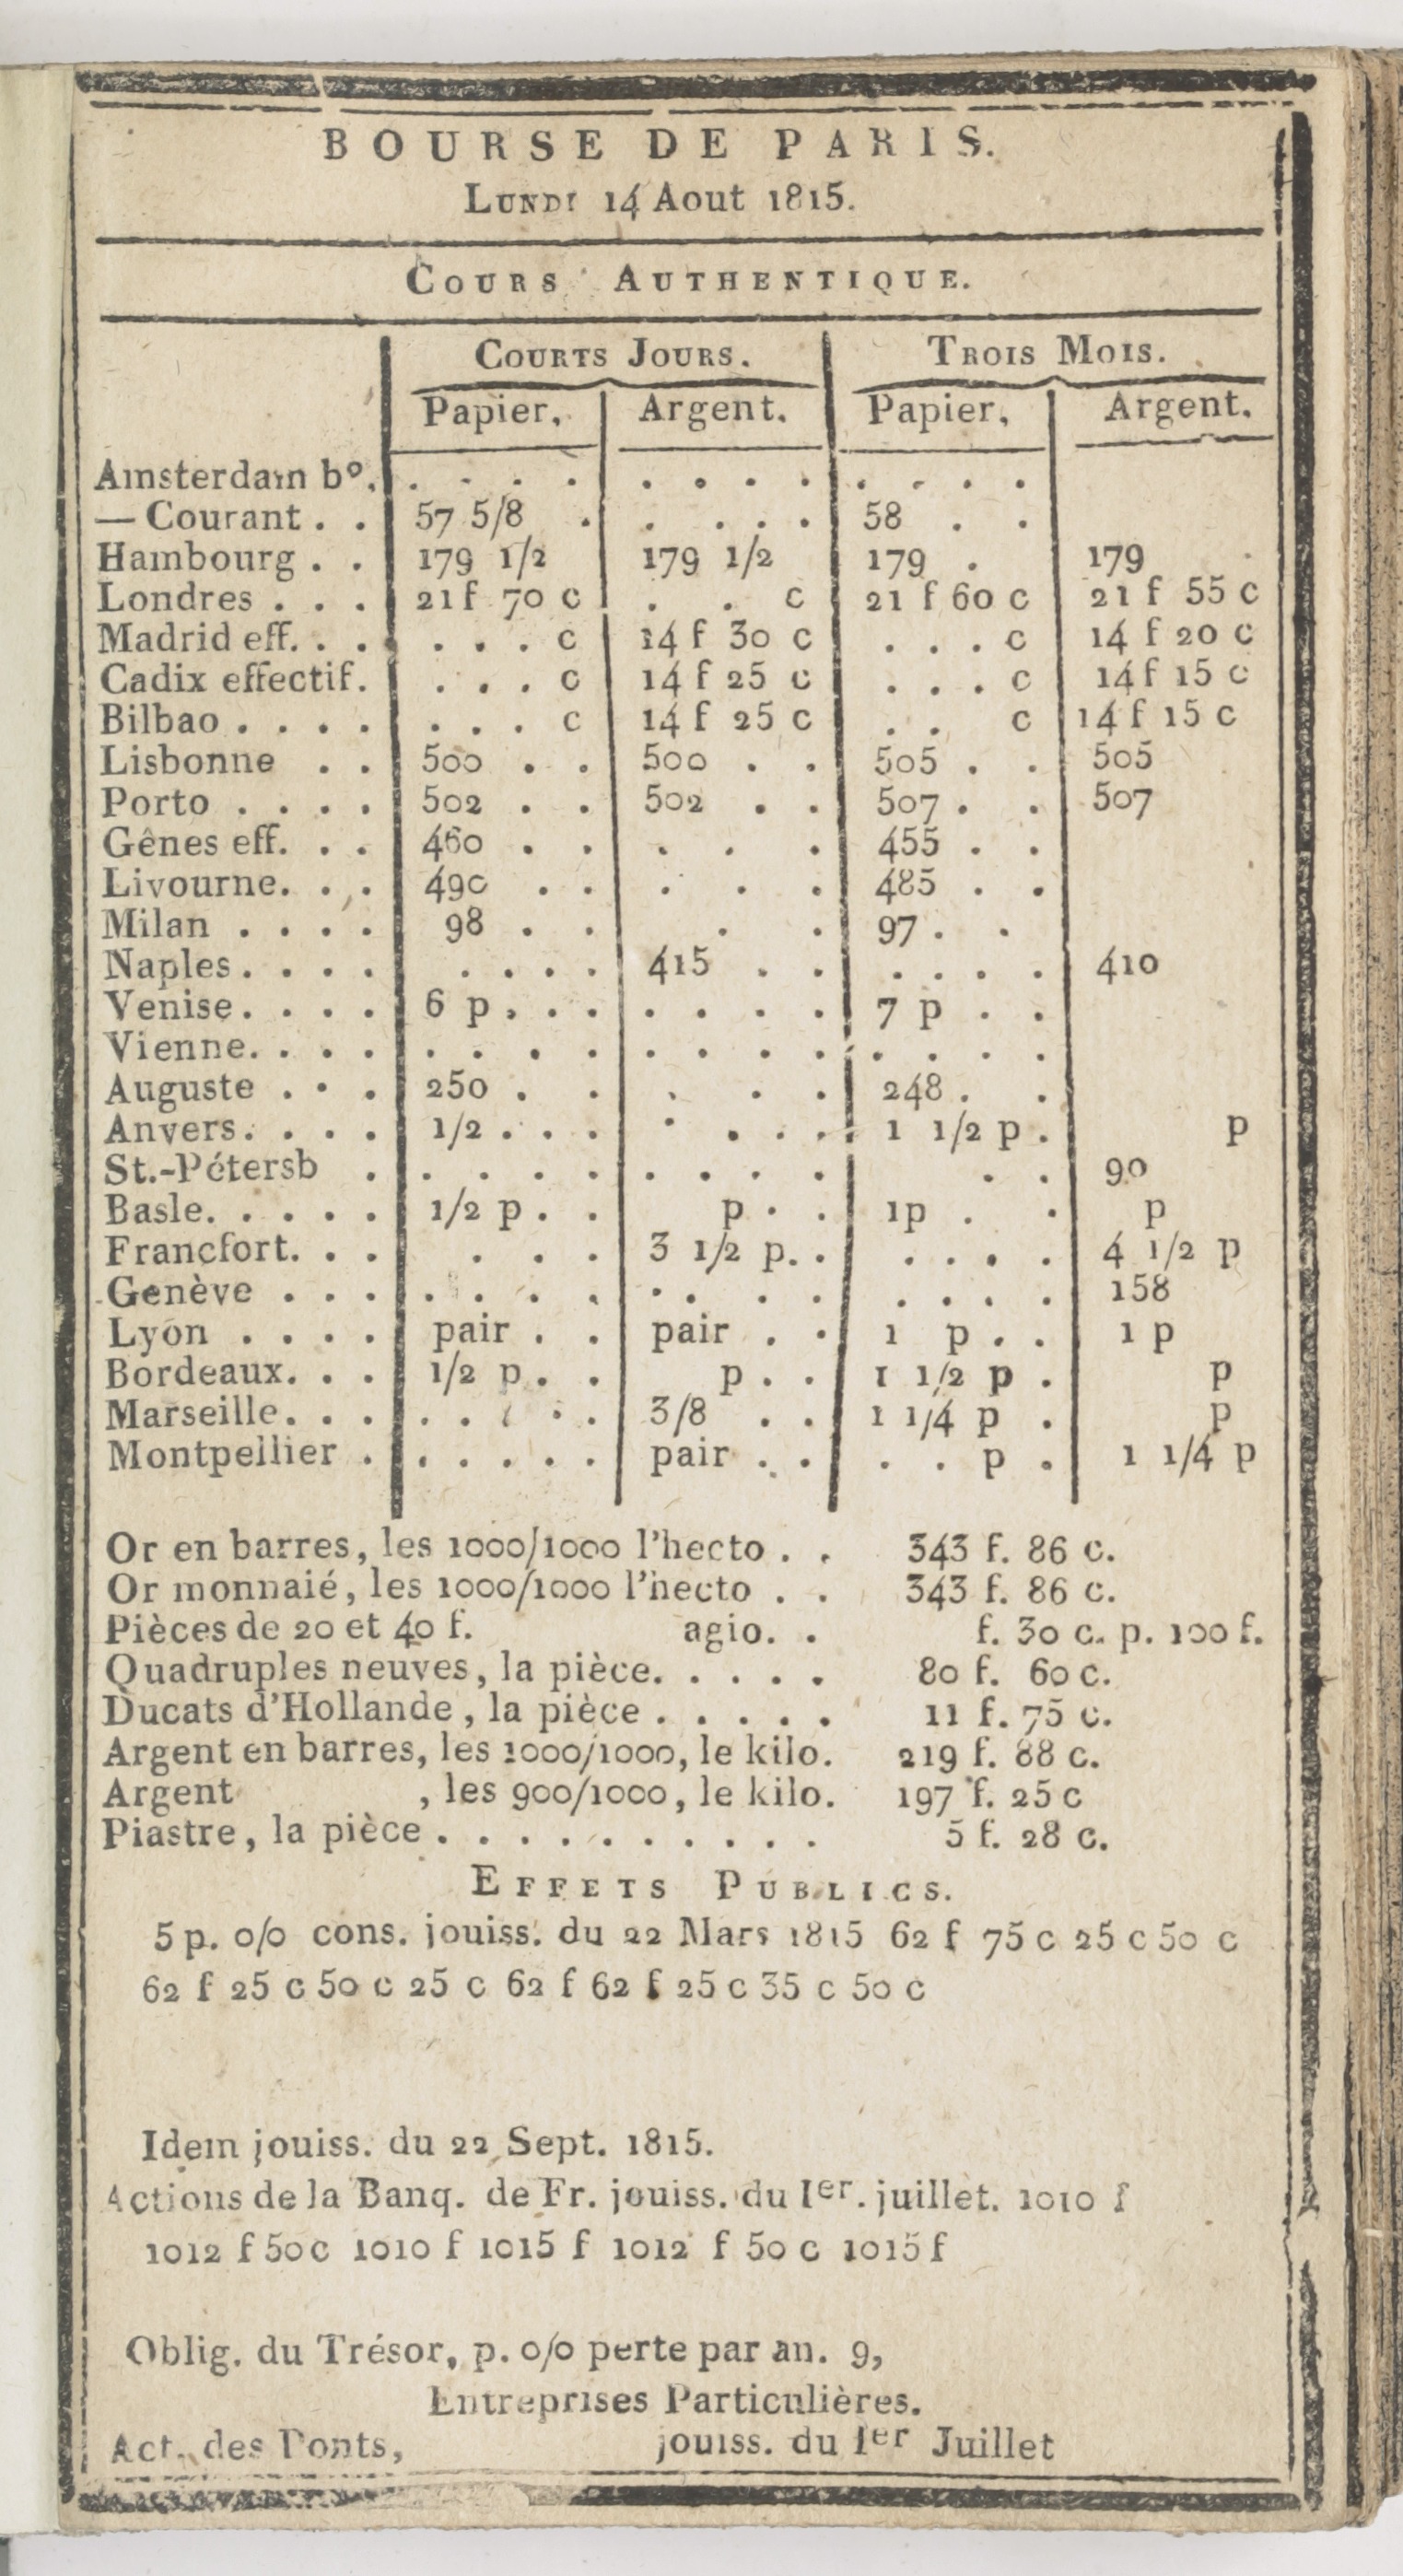 BOURSE DE PARIS.
LUNDI 14 Aout 1815.
COURS AUTHENTIQUE.
COURTS JOURS. TROIS MOIS.
Papier, Argent. Papier, Argent.
Amsterdam bº. . . . . . . . . . . . .
— Courant . . 57 5/8 . . . . . 58 . .
Hambourg . . 179 1/2 179 1/2 179 . 179
Londres . . . 21 f 70 c . . c 21 f 60 c 21 f 55 c
Madrid eff. . . . . . c 14 f 30 c . . . c 14 f 20 c
Cadix effectif. . . . c 14 f 25 c . . . c 14 f 15 c
Bilbao . . . . . . . c 14 f 25 c . . c 14 f 15 c
Lisbonne . . 500 . . 500 . . 505 . . 505
Porto . . . . 502 . . 502 . . 507 . . 507
Gênes eff. . . 460 . . . . . 455 . .
Livourne. . . 490 . . . . . 485 . .
Milan . . . . 98 . . . . 97 . .
Naples. . . . . . . . 415 . . . . . . 410
Venise. . . . 6 p . . . . . . . 7 p . .
Vienne. . . . . . . . . . . . . . . .
Auguste . . . 250 . . . . . 248 . .
Anvers. . . . 1/2 . . . . . . . 1 1/2 p . p
St.-Pétersb . . . . . . . . . . . 90
Basle. . . . . 1/2 p . . p . . 1p . . p
Francfort. . . . . . 3 1/2 p. . . . . . 4 1/2 p
Genève . . . . . . . . . . . . . . . 158
Lyon . . . . pair . . pair . . 1 p . . 1 p
Bordeaux. . . 1/2 p . . p . . 1 1/2 p . p
Marseille. . . . . . . 3/8 . . 1 1/4 p . p
Montpellier . . . . . . pair . . . . p . 1 1/4 p
Or en barres, les 1000/1000 l'hecto . . 343 f. 86 c.
Or monnaié, les 1000/1000 l'hecto . . 343 f. 86 c.
Pièces de 20 et 40 f. agio. . f. 30 c. p. 100 f.
Quadruples neuves, la pièce. . . . . 80 f. 60 c.
Ducats d'Hollande, la pièce . . . . . 11 f. 75 c.
Argent en barres, les 1000/1000, le kilo. 219 f. 88 c.
Argent , les 900/1000, le kilo. 197 f. 25 c
Piastre, la pièce . . . . . . . . . . 5 f. 28 c.
EFFETS PUBLICS.
5 p. o/o cons. jouiss. du 22 Mars 1815 62 f 75 c 25 c 50 c
62 f 25 c 50 c 25 c 62 f 62 f 25 c 35 c 50 c
Idem jouiss. du 22 Sept. 1815.
Actions de la Banq. de Fr. jouiss. du Ier. juillet. 1010 f
1012 f 50 c 1010 f 1015 f 1012 f 50 c 1015 f
Oblig. du Trésor, p. o/o perte par an. 9,
Entreprises Particulières.
Act. des Ponts, jouiss. du Ier Juillet